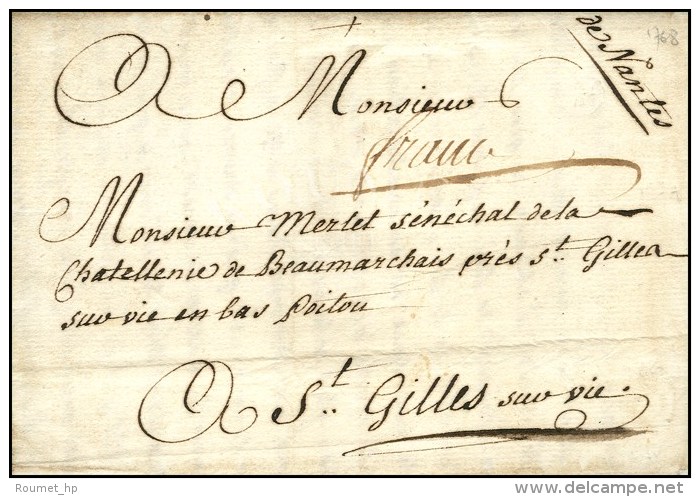 de Nantes
1768
A Monsieur
franc
Monsieur Merlet sénéchal de la
Chatellenie de Beaumarchais près St. Gilles
sur vie en bas Poitou
A St. Gilles sur vie.
Roumet_hp
delcampe.net